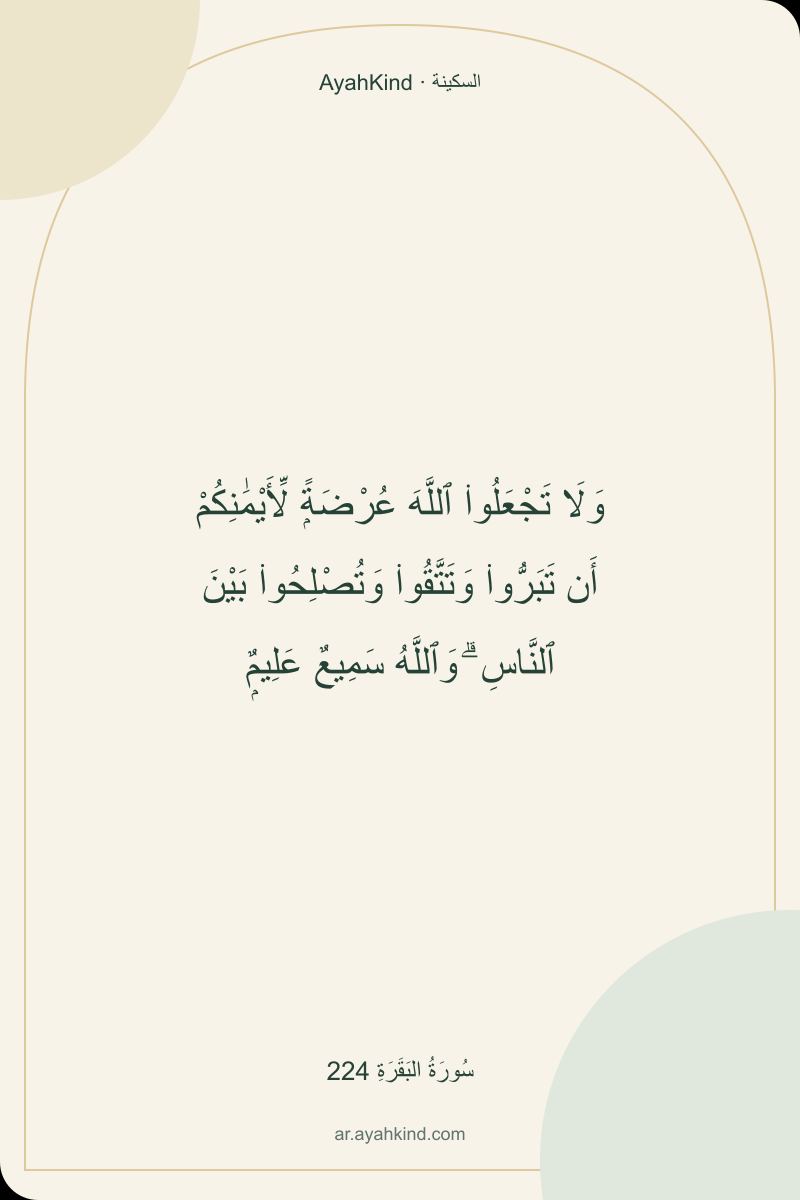 السكينة · AyahKind
وَلَا تَجْعَلُوا۟ ٱللَّهَ عُرْضَةًۭ لِّأَيْمَـٰنِكُمْ
أَن تَبَرُّوا۟ وَتَتَّقُوا۟ وَتُصْلِحُوا۟ بَيْنَ
ٱلنَّاسِ ۗ وَٱللَّهُ سَمِيعٌ عَلِيمٌۭ
سُورَةُ البَقَرَةِ 224
ar.ayahkind.com